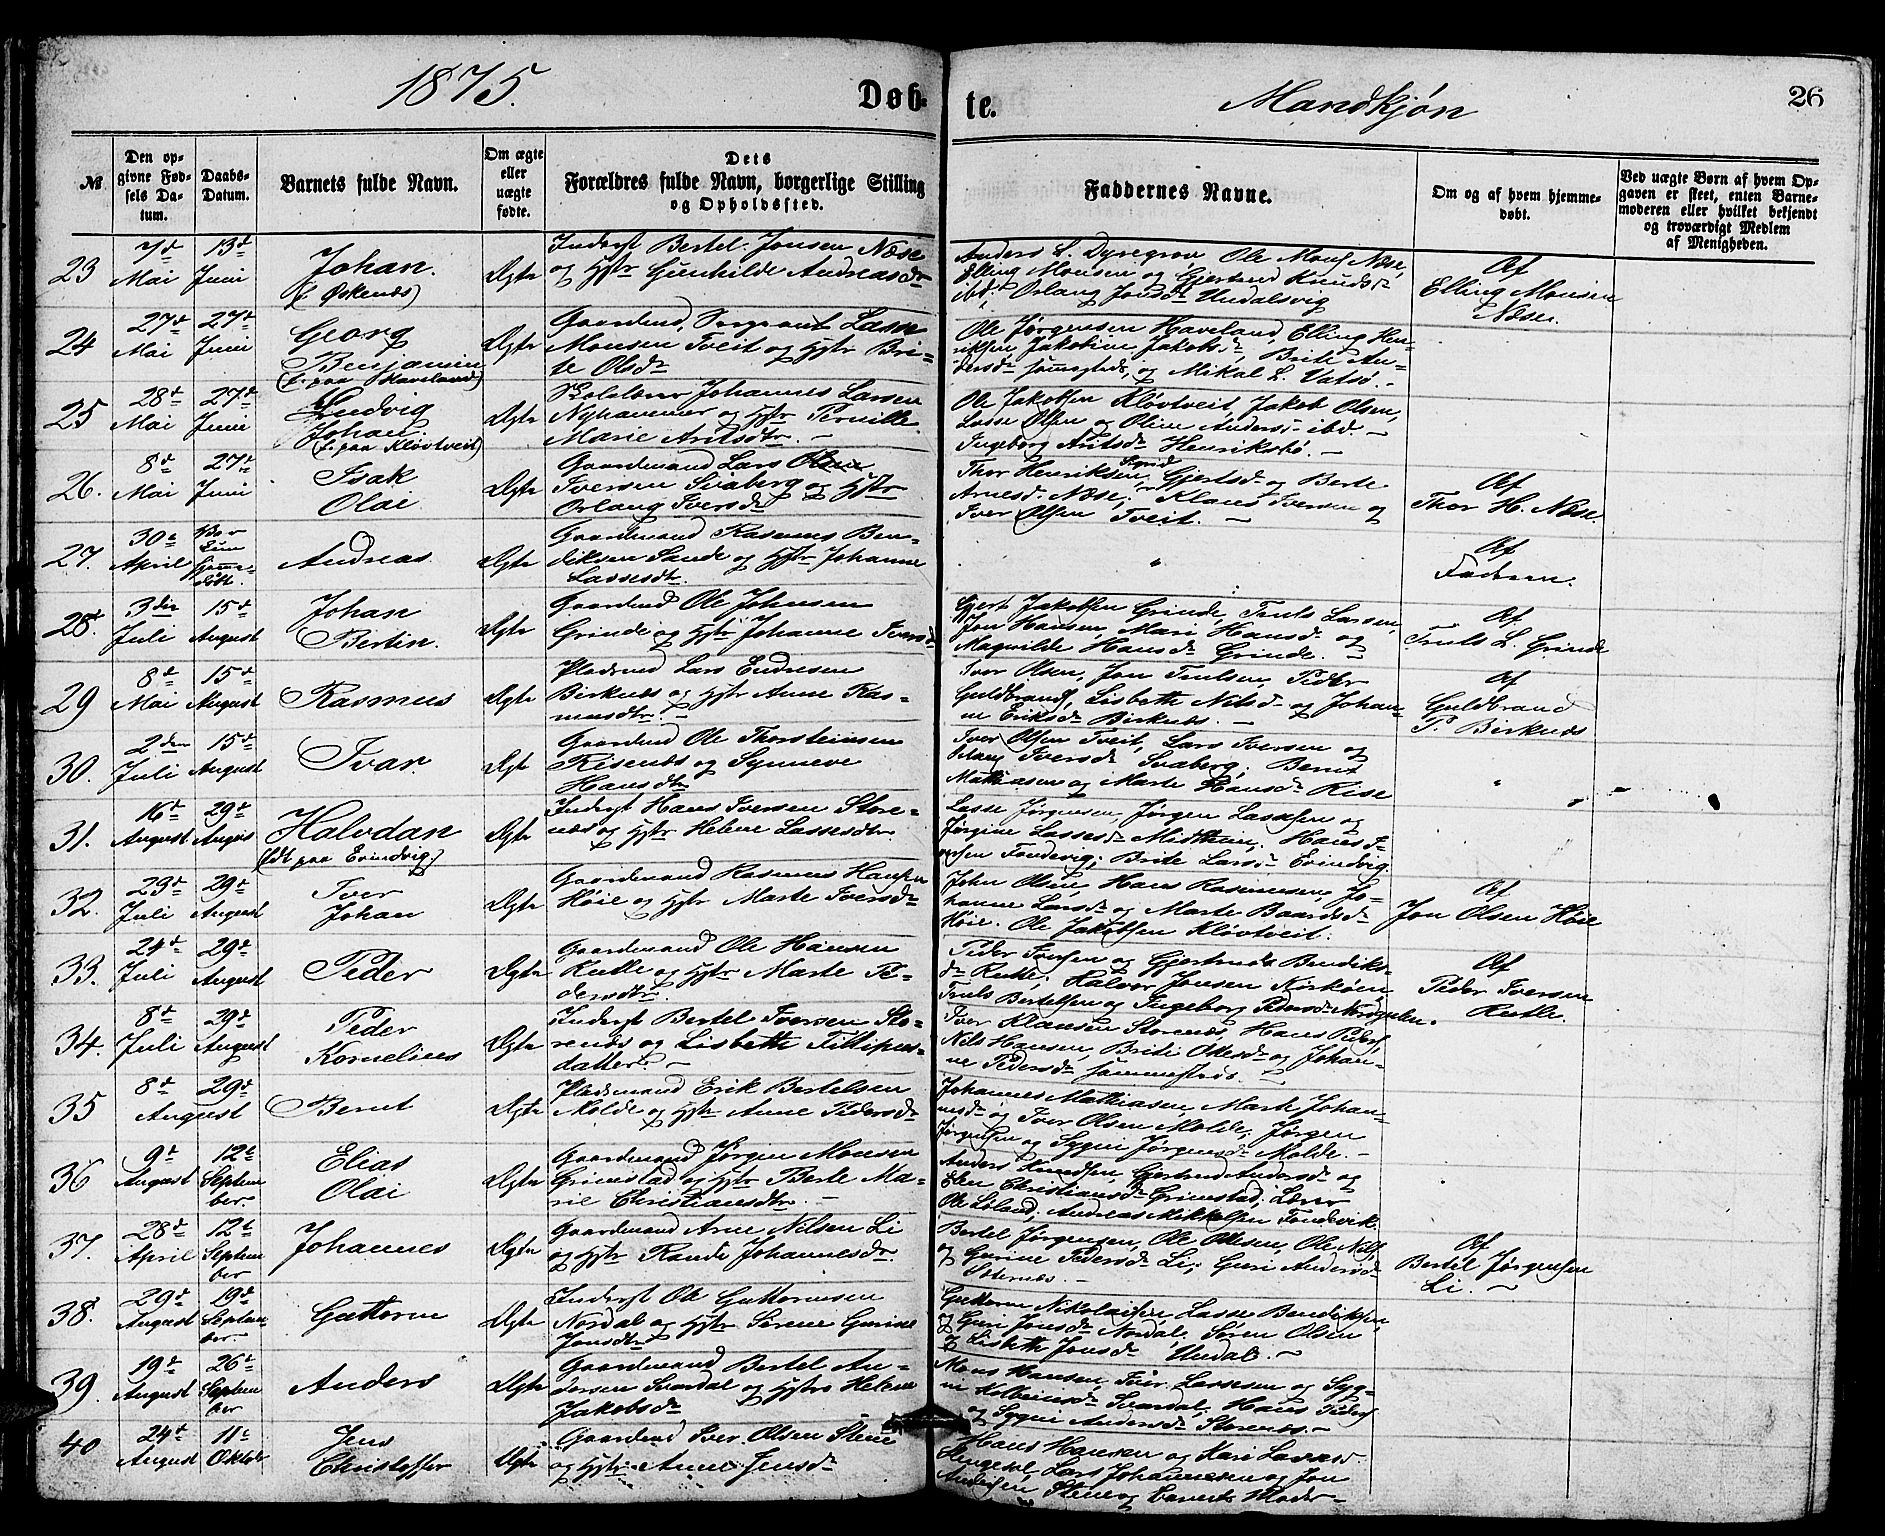 1875.
Døb-
te.
Mandkjøn
26
№
Den op-
givne Fød-
sels Da-
tum.
Daabs-
Datum.
Barnets fulde Navn.
Om ægte
eller
uægte
fødte.
Dets
Forældres fulde Navn, borgerlige Stilling
og Opholdssted.
Faddernes Navne.
Om og af hvem hjemme-
døbt.
Ved uægte Børn af hvem Op-
gaven er skeet, enten Barne-
moderen eller hvilket bekjendt
og troværdigt Medlem
af Menigheden.
23
7d
Mai
13d
Juni
Johan.
(f. Øskenæs)
Ægte
Inderst Bertel Jonsen Næse
og Hstr Gunhilde Andreasdr
Anders L. Dyregrov, Ole Mons Næse,
Elling Monsen og Gjertrud Knudsdr
ibd; Orlaug Jonsdr Undalsvig
Af
Elling Monsen
Næse.
24
27d
Mai
27d
Juni
Georg
Benjamin
(f. paa Haveland)
Ægte
Gaardmd, Sergeant Lasse
Monsen Tveit og Hstr Bri-
te Olsdr
Ole Jørgensen Haveland, Elling Hen-
riksen, Jakobine Jakobsdr, Brite An-
dersdr sammesteds, og Mikal L. Vatsø.
25
28d
Mai
27d
Juni
Ludvig
Johan
(f. paa Kløvtveit)
Ægte
Johannes Larsen
Nyhammer og Hstr Pernille
Marie Antsdtr.
Ole Jakobsen Kløvtveit, Jakob Olsen,
Lasse Olsen og Oline Andersdr ibd.
Ingeborg Antsdr Henriksbø.
26.
8d
Mai
27d
Juni
Isak
Olai
Ægte
Gaardmand Lars
Iversen Svaberg og Hstr
Orlaug Iversdr
Thor Henriksen, Sigrid Gjertsdr og Berte
Arnesdr Næse; Klaus Iversen og
Iver Olsen Tveit.
Af
Thor H. Næse.
27.
30e
April
hjemme-
døbt.
Andreas
Ægte
Gaardmand Rasmus Ben-
diksen Sande og Hstr Johanne
Lassesdtr.
"
Af
Faderen.
28.
3die
Juli
15d
August
Johan
Bertin.
Ægte
Gaardmd Ole Johnsen
Grinde og Hstr Johanne Iversdr
Gjert Jakobsen Grinde, Truls Larsen,
Jon Hansen, Mari Hansdr og
Magnilde Hansdr Grinde.
Af
Truls L. Grinde
29
8d
Mai
15d
August
Rasmus
Ægte
Pladsmd Lars Endresen
Birknæs og Hstr Anne Ras-
musdtr.
Iver Olsen, Jon Trulsen, Peder
Guldbrands, Lisbeth Nilsdr og Johan-
ne Eriksdr Birknæs.
Af
Guldbrand
P. Birknæs
30.
2den
Juli
15d
August
Ivar.
Ægte
Gaardmd Ole Thorsteinsen
Risenæs og Synneve
Hansdtr
Iver Olsen Tveit, Lars Iversen og
Orlaug Iversdr Svaberg; Bernt
Mathiasen og Marte Hansdr Rise
"
31.
16d
August
29d
August
Halvdan
(født paa Evindvig.)
Ægte
Inderst Hans Iversen Store-
næs og Hstr Helene Lassesdtr.
Lasse Jørgensen, Jørgen Lassesen og
Jørgine Lassesdr Midtheim, Hans I-
versen Fondevig; Brite Larsdr Evindvig.
32.
23d
Juli
29d
August
Iver
Johan
Ægte
Gaardmand Rasmus Hansen
Høie og Hstr Marte Iversdr
John Olsen, Hans Rasmussen, Jo-
hanne Larsdr og Marte Baardsdr
Høie. Ole Jakobsen Kløvtveit.
Af
Jon Olsen Høie
33.
24d
Juli
29d
August
Peder
Ægte
Gaardmand Ole Hansen
Rutle og Hstr Marte Pe-
dersdtr.
Peder Iversen og Gjertrude Bendiks-
dr Rutle; Halvor Jonsen Kirkøen,
Truls Bertelsen og Ingeborg Pedersdr Nordgulen.
Af
Peder Iversen
Rutle.
34.
8d
Juli
29d
August
Peder
Kornelius
Ægte
Inderst Bertel Iversen Sto-
renæs og Lisbeth Fillipus-
datter.
Iver Klausen Storenæs, Hans Peders,
Nils Hansen, Brite Olsdr og Johan-
ne Pedersdr sammesteds.
35
8d
29d
August
Bernt
Ægte
Pladsmand Erik Bertelsen
Molde og Hstr Anne Pedersdr
Johannes Mathiasen, Marte Johan-
nesdr og Iver Olsen Molde, Jørgen
Jørgensen og Sygni Jørgensdr Molde.
36
9d
August
12e
Septem-
ber.
Elias
Olai
Ægte
Gaardmand Jørgen Monsen
Grimstad og Hstr Berte Ma-
rie Christiansdtr.
Anders Knudsen, Gjertrud Andersdr og
Elen Christiansdr Grimstad; Lærer
Ole Løland; Andreas Mikkelsen Fondevik.
37.
28d
April
12e
Septem
ber
Johannes
Ægte
Gaardmand Arne Nilsen Li
og Hstr Rande Johannesdr.
Bertel Jørgensen, Ole Ottesen, Ole Nils,
og Gurine Pedersdr Li; Guri Andersdr
Af
Bertil Jørgensen
Li.
38.
29d
August
19d
Septem-
ber.
Guttorm
Ægte
Inderst Ole Guttormsen
Nordal og Hstr Serene Gurine
Jonsdtr
Guttorm Nikolaisen, Lasse Bendiksen,
og Guri Jonsdr Nordal. Søren Olsen
og Lisbeth Jonsdr Undal.
39.
19d
August
26d
Septem
ber
Anders
Ægte
Gaardmand Bertel An-
dersen Svardal og Hstr Helene
Jakobsdr
Mons Hansen, Iver Lassesen og Syg-
ni Kolbeinsdr Svardal; Hans Peders
og Sygni Andersdr Storenæs.
40
24d
August
11e
Oktober
Jens
Christoffer
Ægte
Gaardmd Iver Olsen Stene
og Hstr Anne Jensdr
Hans Hansen og Kari Larsdr
Hengesøl, Lars Johannesen og Jon
Andersen Stene og Barnets Moder